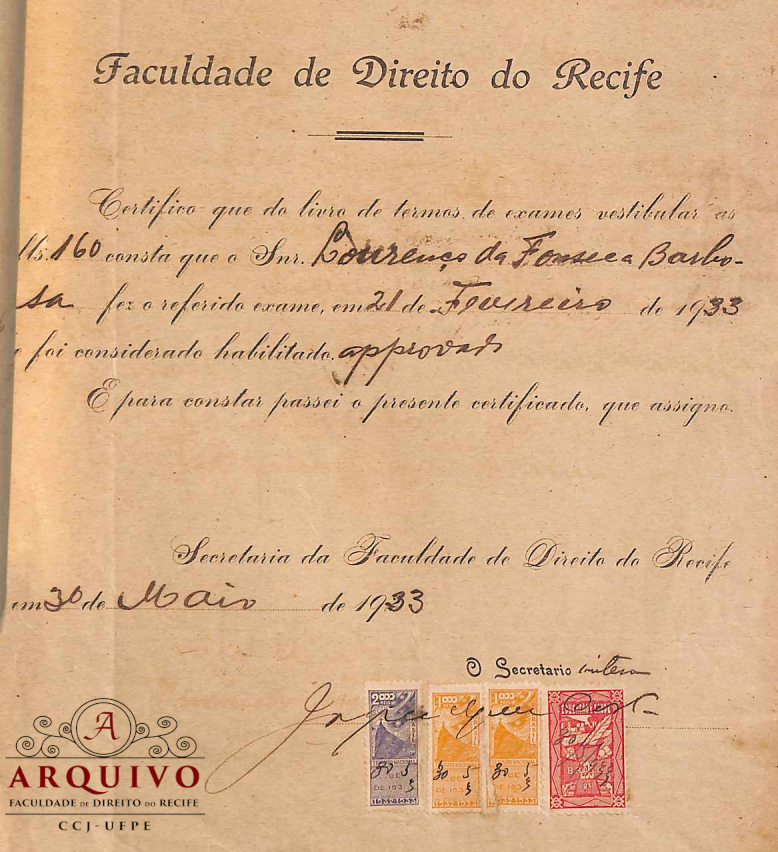 Faculdade de Direito do Recife
Certifico que do livro de termos de exames vestibular as
fls. 160 consta que o Snr. Lourenço da Fonseca Barbo-
sa fez o referido exame, em 21 de Fevereiro de 1933
e foi considerado habilitado. approvado
E para constar passei o presente certificado, que assigno.
Secretaria da Faculdade de Direito do Recife
em 30 de Maio de 1933
O Secretario interino
2000
1000
1000
30 5
30 5
30 5
DE 193
DE 193
A
ARQUIVO
FACULDADE DE DIREITO DO RECIFE
CCJ-UFPE